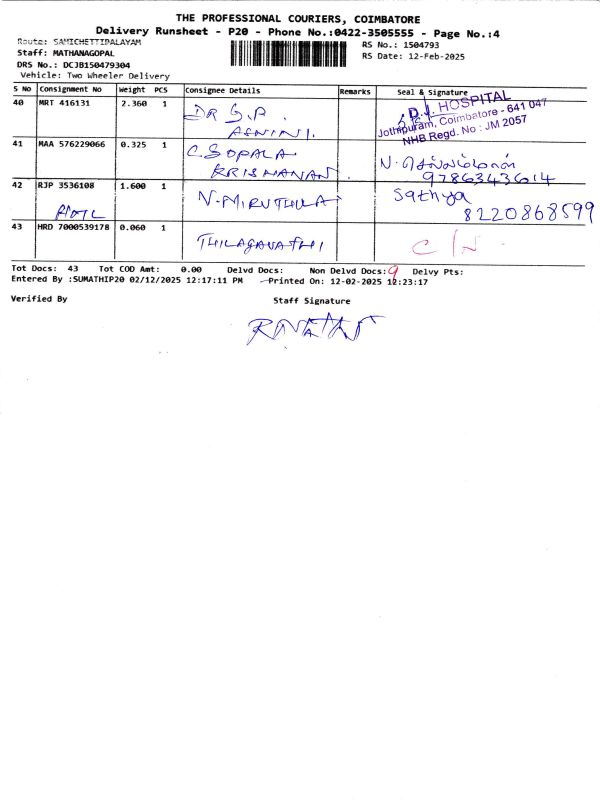 THE PROFESSIONAL COURIERS, COIMBATORE
Delivery Runsheet - P20 - Phone No.:0422-3505555 - Page No.:4
Route: SAMICHETTIPALAYAM
Staff: MATHANAGOPAL
DRS No.: DCJB150479304
Vehicle: Two Wheeler Delivery
RS No.: 1504793
RS Date: 12-Feb-2025
S No Consignment No Weight PCS Consignee Details Remarks Seal & Signature
40 MRT 416131 2.360 1 DR S.P. ASWINI.
D.J. HOSPITAL
Jothipuram, Coimbatore - 641 047
NHB Regd. No : JM 2057
41 MAA 576229066 0.325 1 C. GOPALA KRISHANAN. N. செல்லம்மாள்
9786343614
42 RJP 3536108 1.600 1 N. MIRUTHULA Sathya
8220868599
43 HRD 7000539178 0.060 1 THILAGAVATHI C/N
Tot Docs: 43 Tot COD Amt: 0.00 Delvd Docs: Non Delvd Docs: 9 Delvy Pts:
Entered By :SUMATHIP20 02/12/2025 12:17:11 PM Printed On: 12-02-2025 12:23:17
Verified By Staff Signature